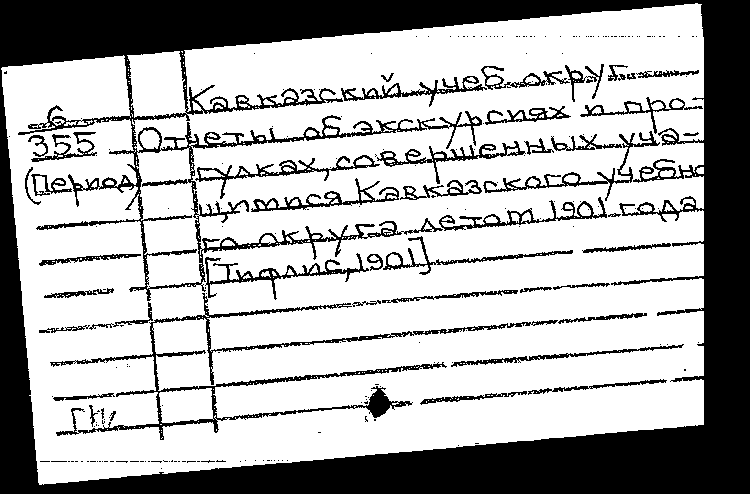 Кавказский учеб. округ.
6
355
(Период)
Отчеты об экскурсиях и про-
гулках, совершенных уча-
щимися Кавказского учебно
го округа летом 1901 года
[Тифлис, 1901]